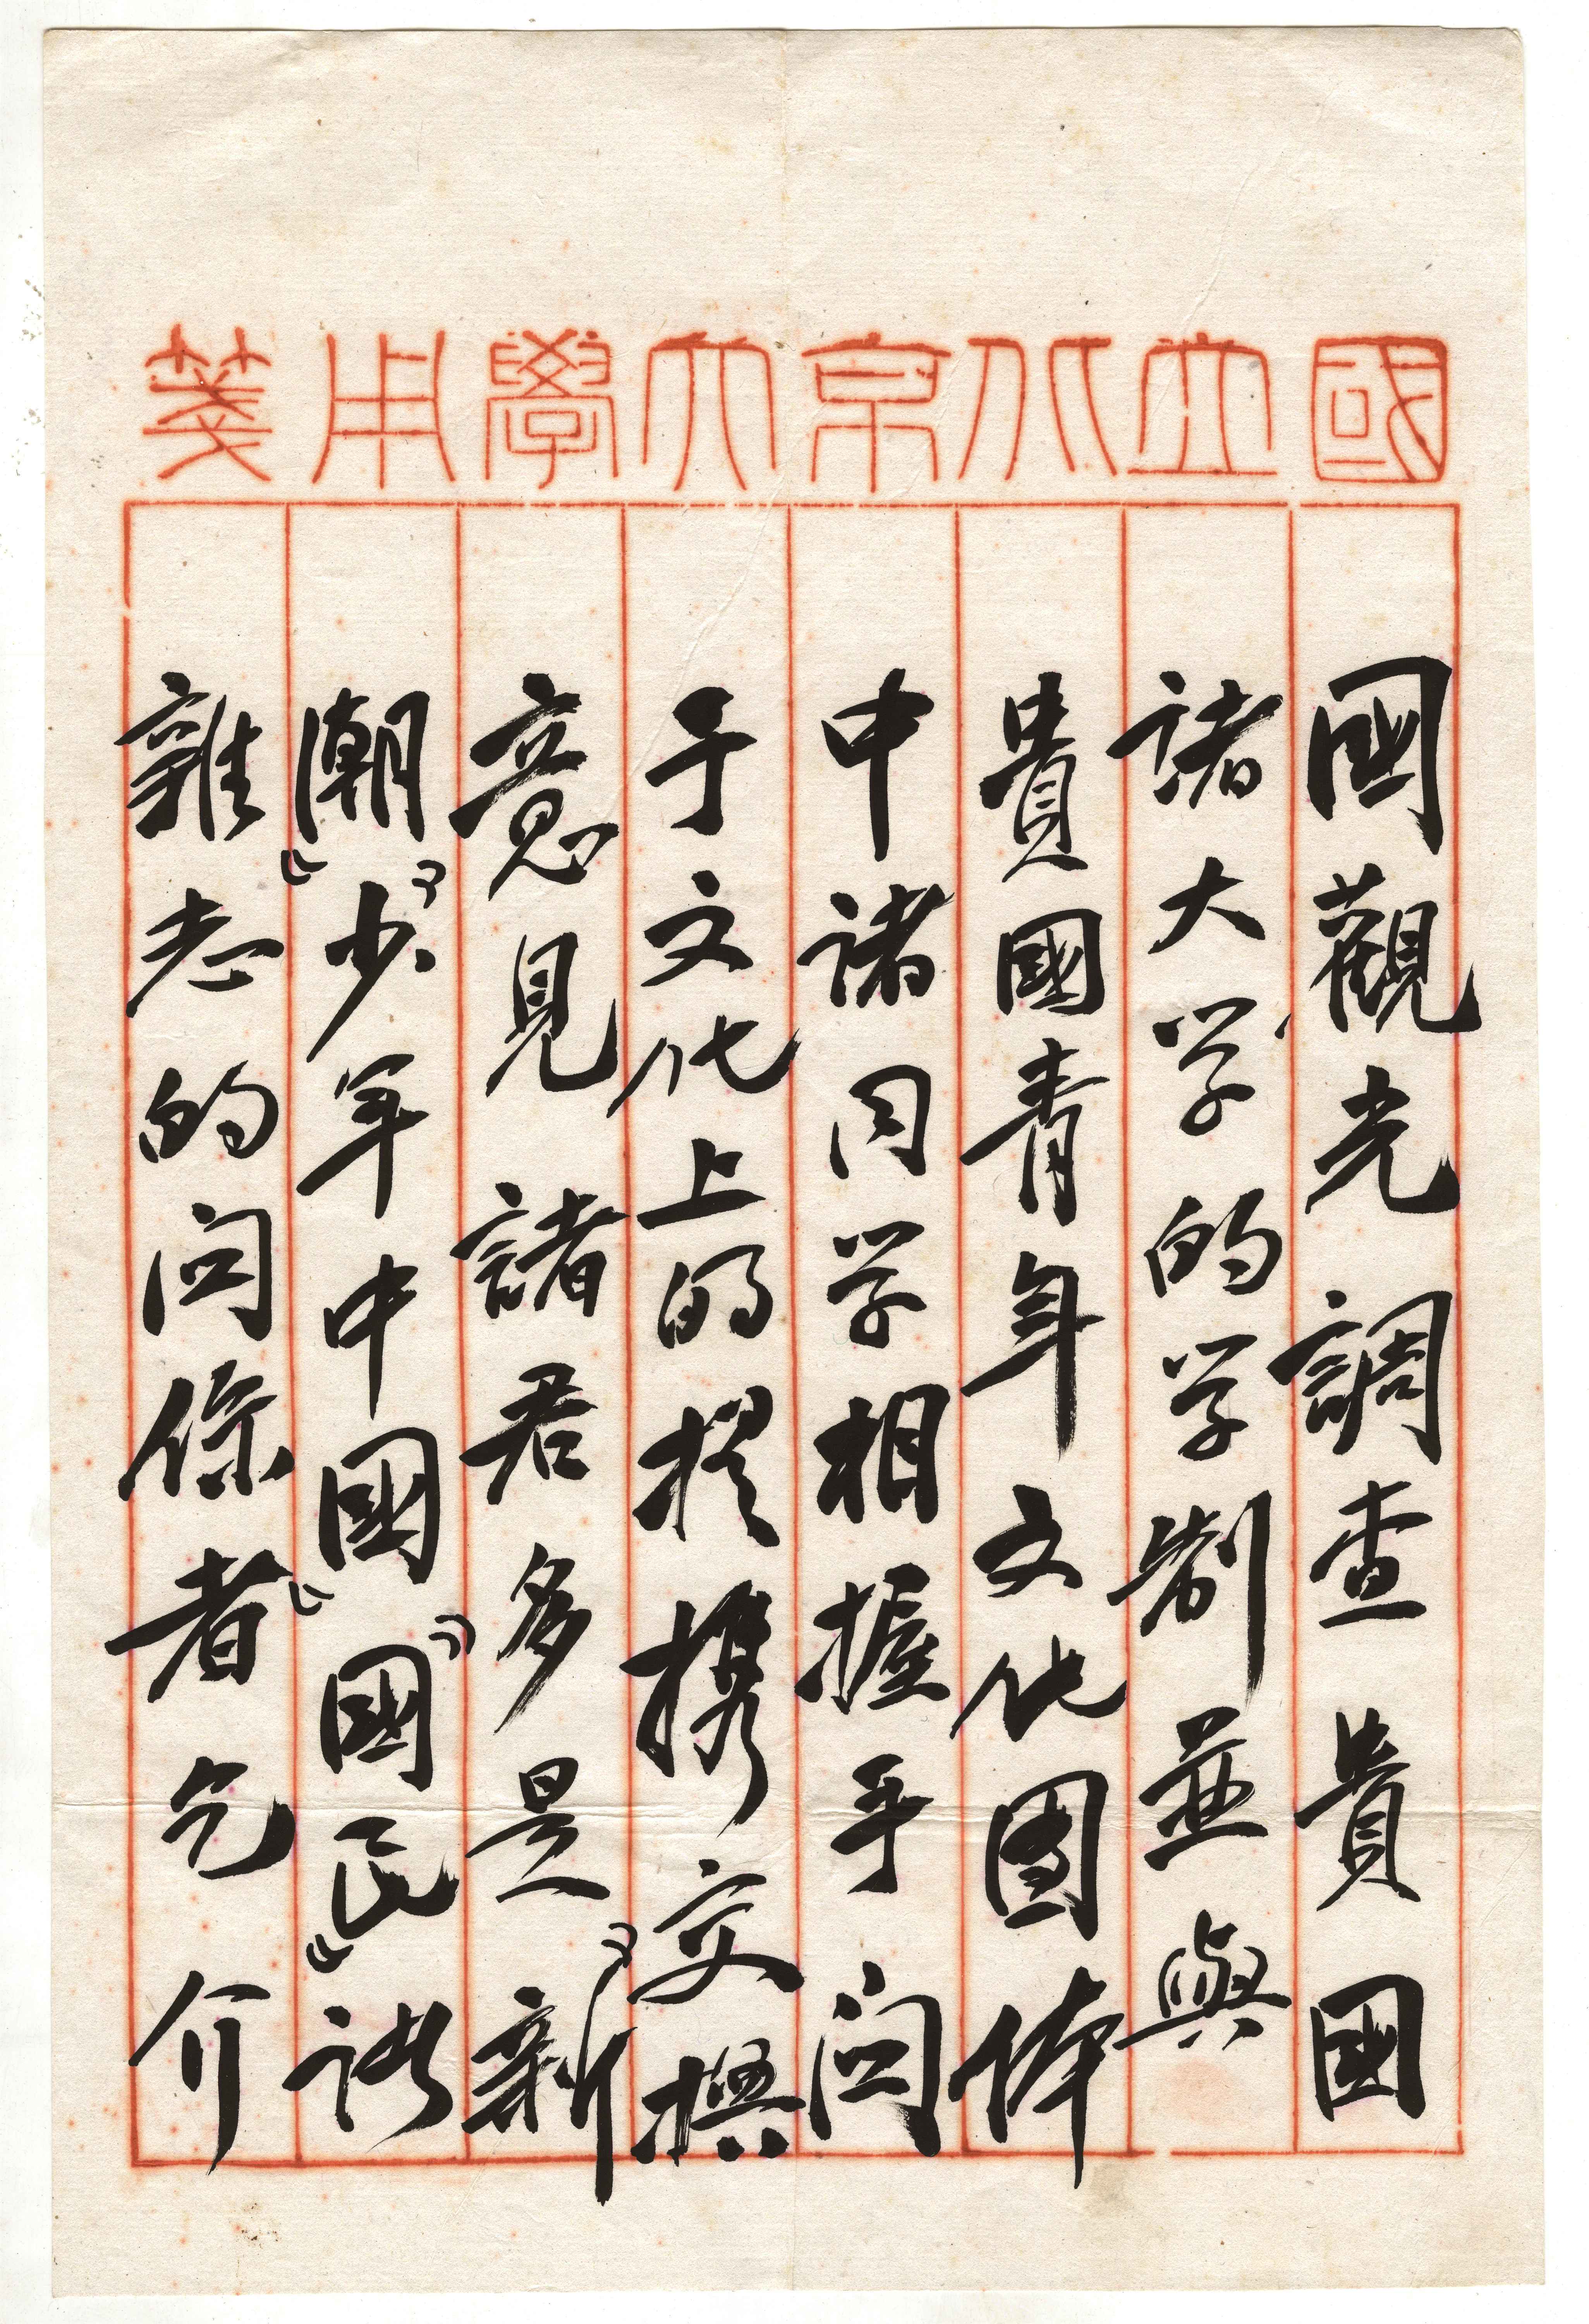 國立北京大學用箋
國觀光調查貴國
諸大学的学制並與
貴國青年文化團体
中諸同学相握手関
于文化上的提携交換
意見諸君多是“新
潮”“少年中國”“國民”諸
雜志的関係者乞介